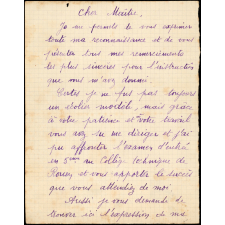 Cher Maître,
Je me permets de vous exprimer
toute ma reconnaissance et de vous
présenter tous mes remerciements
les plus sincères pour l'instruction
que vous m'avez donné.
Certes je ne fus pas toujours
un écolier modèle, mais grâce
à votre patience et votre travail
vous avez su me diriger et j'ai
pu affronter l'examen d'entrée
en 5ème au Collège Technique de
et vous apporter le succès
que vous attendiez de moi.
Aussi je vous demande de
trouver ici l'expression de ma